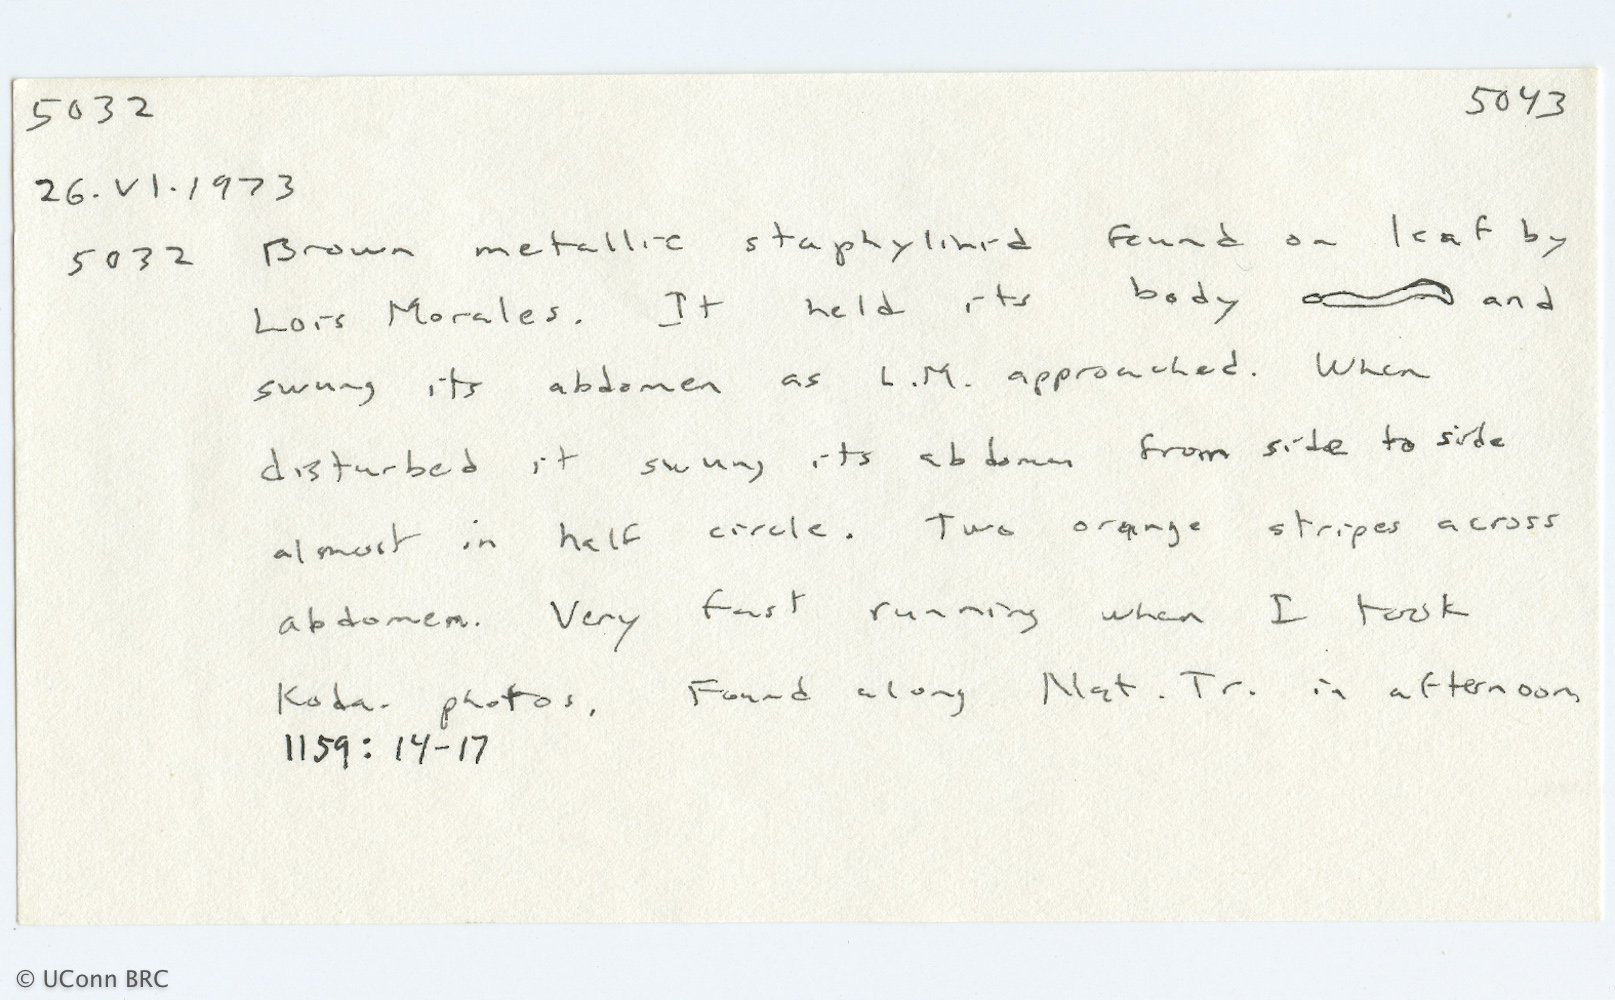 5032 5043
26.VI.1973
5032 Brown metallic staphylinid found on leaf by
Lois Morales. It held its body and
swung its abdomen as L.M. approached. When
disturbed it swung its abdomen from side to side
almost in half circle. Two orange stripes across
abdomen. Very fast running when I took
Koda. photos. Found along Nat. Tr. in afternoon
1159: 14-17
© UConn BRC